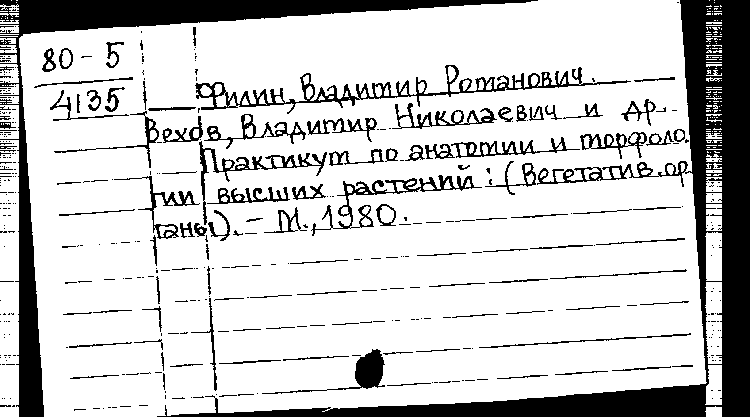 80-5
4135
Филин, Владимир Романович.
Вехов, Владимир Николаевич и др.
Практикум по анатомии и морфоло
гии высших растений: (Вегетатив. ор
ганы). - М., 1980.